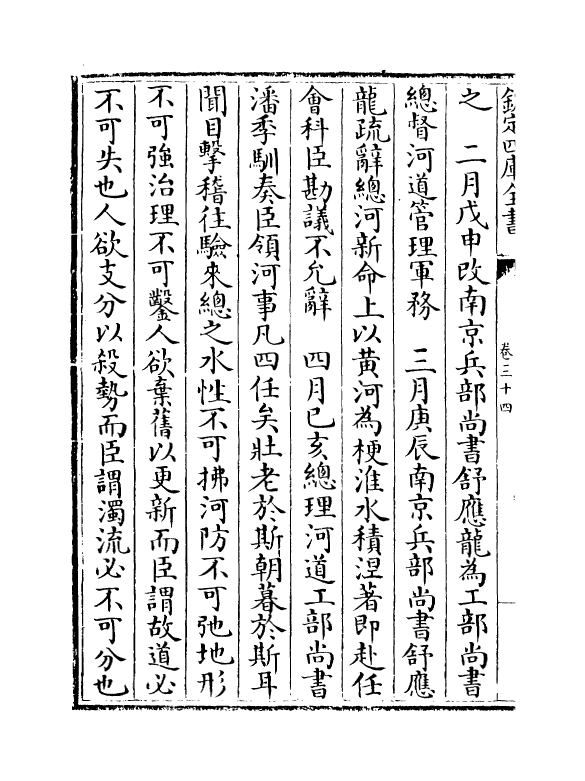 欽定四庫全書
卷三十四
之　二月戊申改南京兵部尚書舒應龍為工部尚書
總督河道管理軍務　三月庚辰南京兵部尚書舒應
龍疏辭總河新命上以黄河為梗淮水積涅著即赴任
會科臣勘議不允辭　四月己亥總理河道工部尚書
潘季馴奏臣領河事凡四任矣壯老於斯朝暮於斯耳
聞目擊稽往驗來總之水性不可拂河防不可弛地形
不可強治理不可鑿人欲棄舊以更新而臣謂故道必
不可失也人欲支分以殺勢而臣謂濁流必不可分也